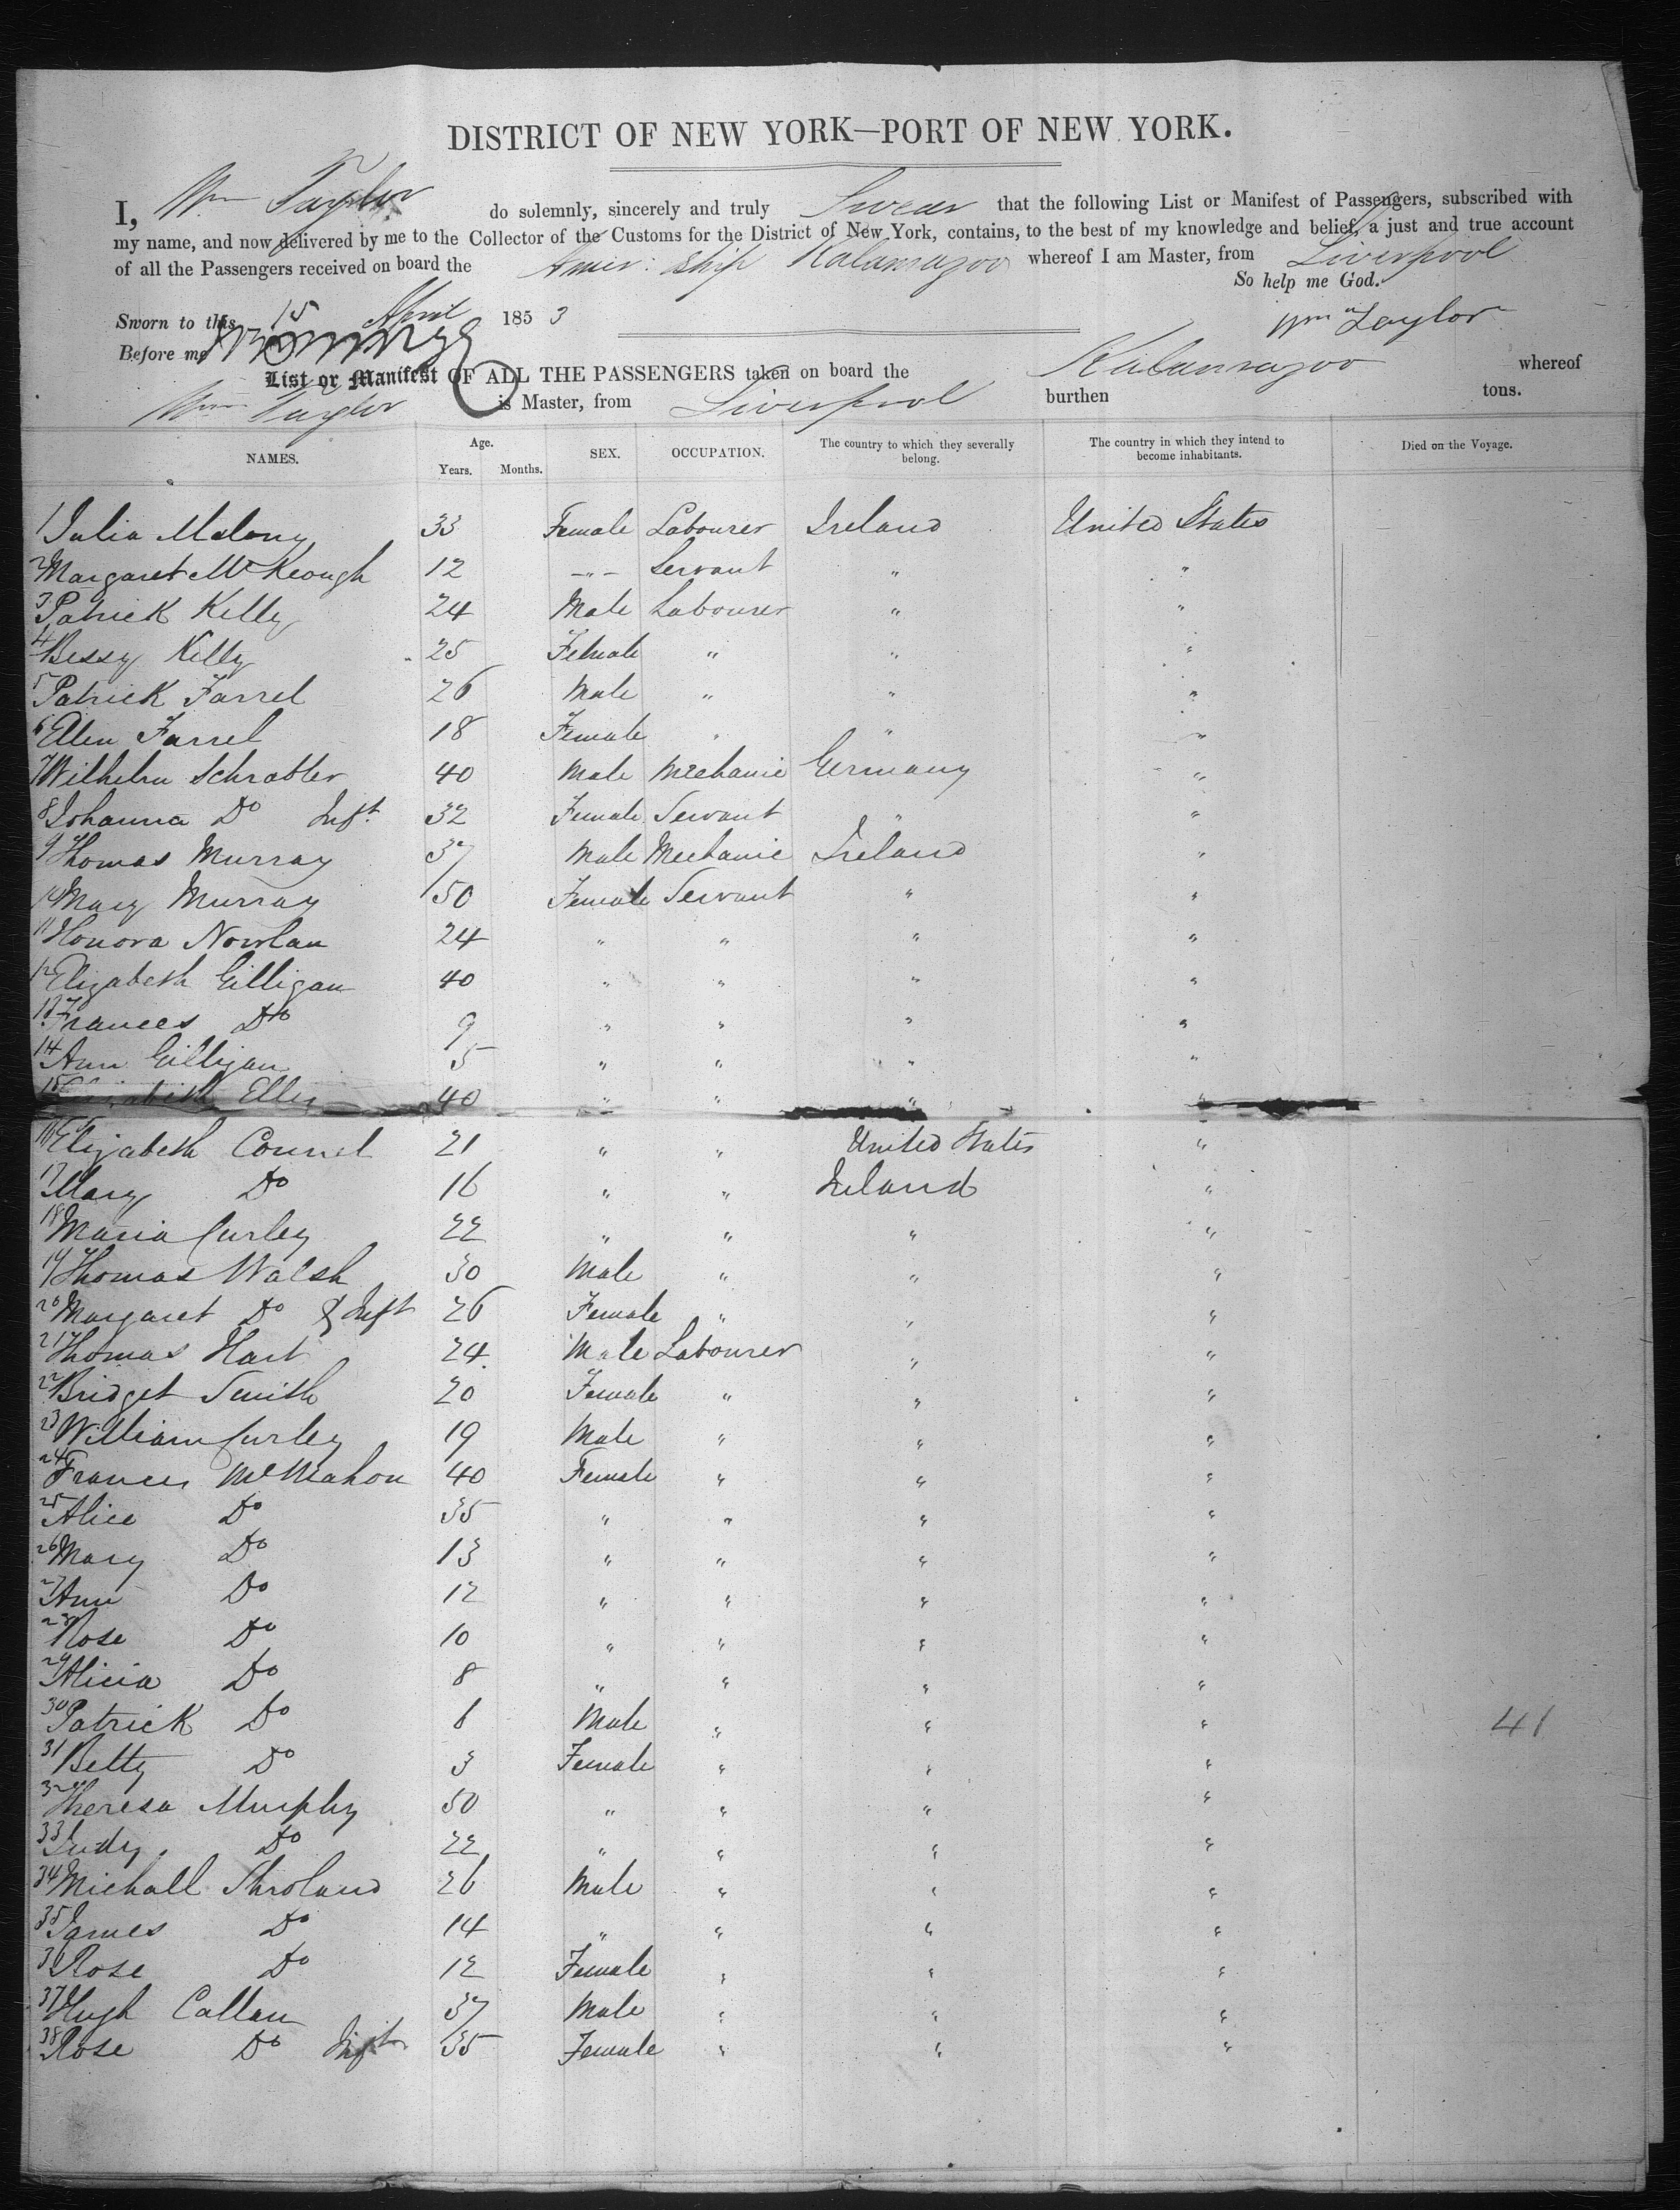 DISTRICT OF NEW YORK—PORT OF NEW YORK.
I, Wm Taylor do solemnly, sincerely and truly Swear that the following List or Manifest of Passengers, subscribed with
my name, and now delivered by me to the Collector of the Customs for the District of New York, contains, to the best of my knowledge and belief, a just and true account
of all the Passengers received on board the Amer: Ship Kalamazoo whereof I am Master, from Liverpool
So help me God.
Sworn to this 15 April 1853
Wm Taylor
Before me
List or Manifest OF ALL THE PASSENGERS taken on board the Kalamazoo whereof
Wm Taylor is Master, from Liverpool burthen tons.
NAMES. Age. Years. Months. SEX. OCCUPATION. The country to which they severally belong. The country in which they intend to become inhabitants. Died on the Voyage.
1 Julia Malony 33 Female Labourer Ireland United States
2 Margaret McKeough 12 -"- Servant " "
3 Patrick Kelly 24 Male Labourer " "
4 Bessy Kelly 25 Female " " "
5 Patrick Farrel 26 Male " " "
6 Ellen Farrel 18 Female " " "
7 Wilhelm Schrabler 40 Male Mechanic Germany "
8 Johanna Do Inft. 32 Female Servant " "
9 Thomas Murray 37 Male Mechanic Ireland "
10 Mary Murray 50 Female Servant " "
11 Honora Nowlan 24 " " " "
12 Elizabeth Gilligan 40 " " " "
13 Frances Do 9 " " " "
14 Ann Gilligan 5 " " " "
15 Elizabeth Ellis 40 " " " "
16 Elizabeth Connel 21 " " United States "
17 Mary Do 16 " " Ireland "
18 Maria Curley 22 " " " "
19 Thomas Walsh 30 Male " " "
20 Margaret Do & Inft 26 Female " " "
21 Thomas Hart 24 Male Labourer " "
22 Bridget Smith 20 Female " " "
23 William Curley 19 Male " " "
24 Frances McMahon 40 Female " " "
25 Alice Do 35 " " " "
26 Mary Do 13 " " " "
27 Ann Do 12 " " " "
28 Rose Do 10 " " " "
29 Alicia Do 8 " " " "
30 Patrick Do 6 Male " " " 41
31 Betty Do 3 Female " " "
32 Theresa Murphy 50 " " " "
33 Judy Do 22 " " " "
34 Michall Shroland 26 Male " " "
35 James Do 14 " " " "
36 Rose Do 12 Female " " "
37 Hugh Callan 37 Male " " "
38 Rose Do Inft 35 Female " " "